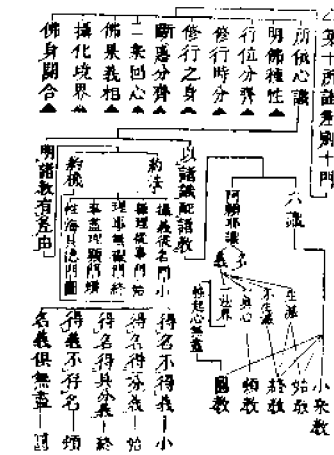 第十所詮差別十門
所依心識
明佛種性
行位分齊
修行時分
修行之身
斷惑分齊
二乘回心
佛果義相
攝化境界
佛身開合
六識
阿賴耶識
名
義
生滅
不生滅
真心
法界
性起心無盡
小乘教
始教
終教
頓教
圓教
以諸識配諸教
約法
攝義從名門小
攝理從事門始
理事無礙門終
事盡理顯門頓
性海具德門圓
明諸教有差由
約機
得名不得義小
得名得分義始
得名得具分義終
得義不存名頓
名義俱無盡圓